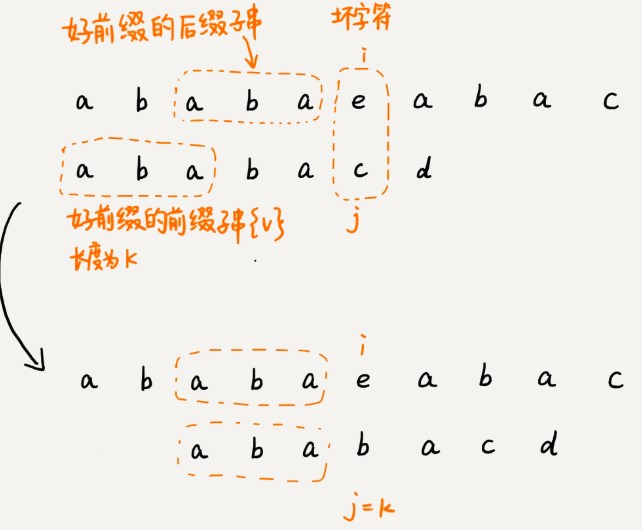 好前缀的后缀子串 坏字符
i
a b a b a e a b a c
a b a b a c d
好前缀的前缀子串{v} j
长度为k
i
a b a b a e a b a c
a b a b a c d
j=k